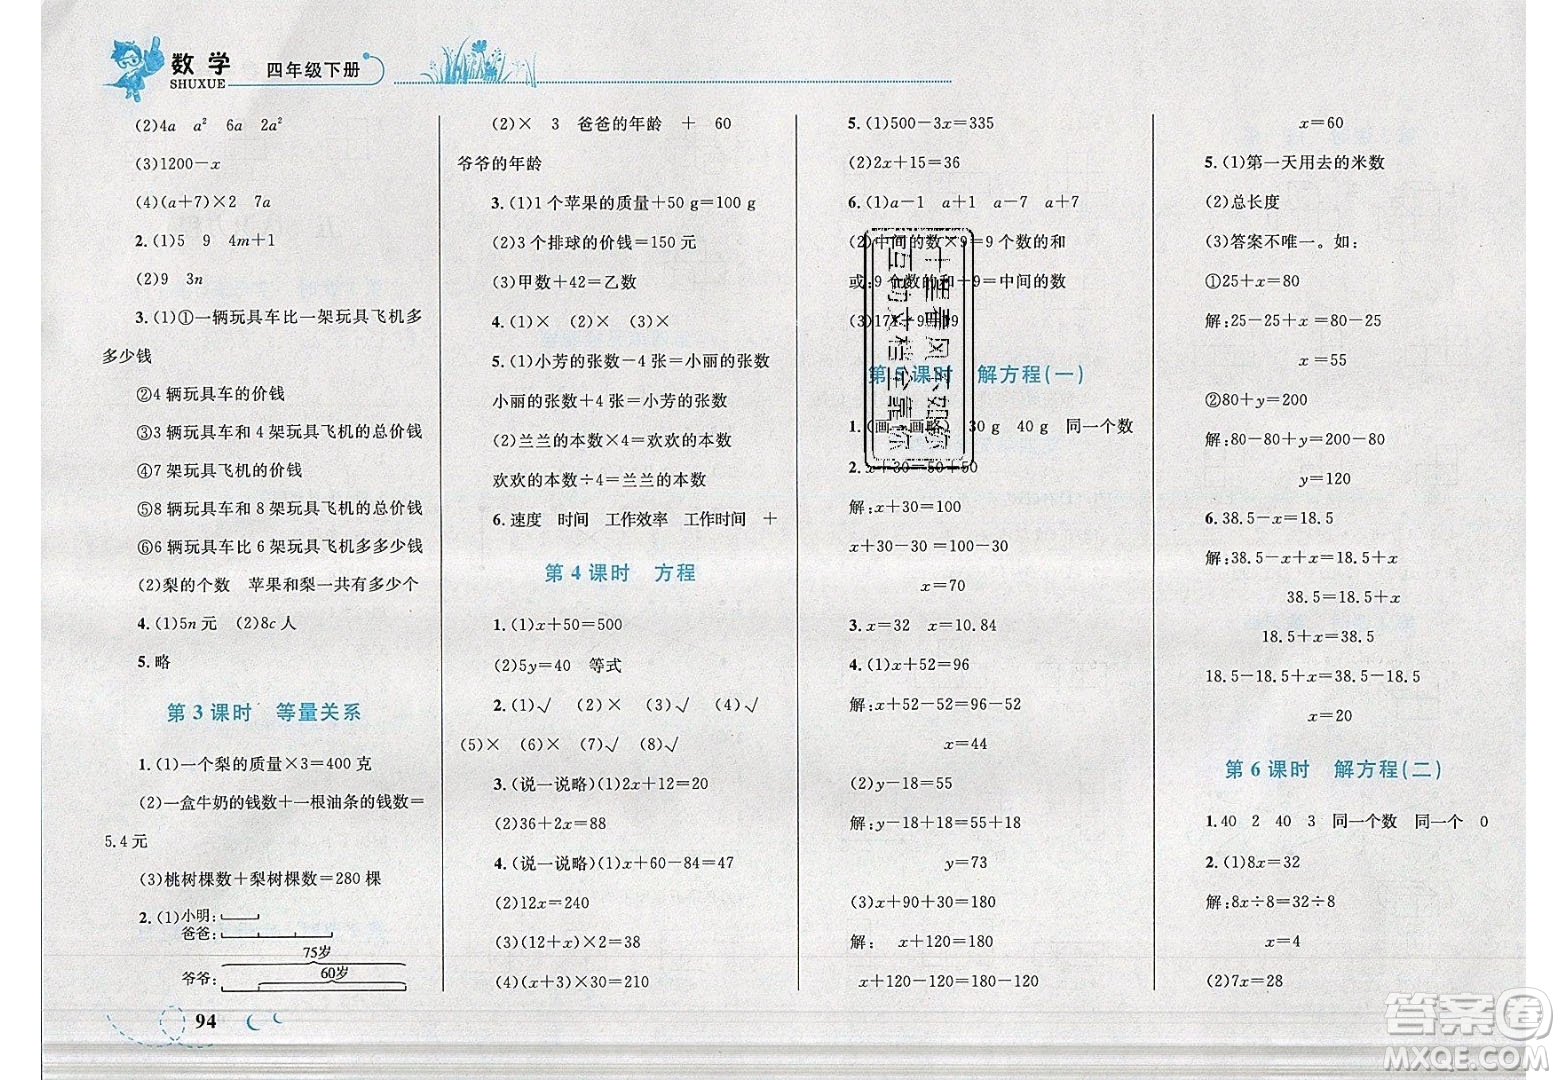 数学
SHUXUE
四年级下册
(2)4a a² 6a 2a²
(3)1200－x
(4)(a＋7)×2 7a
2.(1)5 9 4m＋1
(2)9 3n
3.(1)①一辆玩具车比一架玩具飞机多
多少钱
②4 辆玩具车的价钱
③3 辆玩具车和 4 架玩具飞机的总价钱
④7 架玩具飞机的价钱
⑤8 辆玩具车和 8 架玩具飞机的总价钱
⑥6 辆玩具车比 6 架玩具飞机多多少钱
(2)梨的个数 苹果和梨一共有多少个
4.(1)5n 元 (2)8c 人
5.略
第 3 课时 等量关系
1.(1)一个梨的质量×3＝400 克
(2)一盒牛奶的钱数＋一根油条的钱数＝
5.4 元
(3)桃树棵数＋梨树棵数＝280 棵
2.(1)小明:
爸爸:
75岁
爷爷:
60岁
94
(2)× 3 爸爸的年龄 ＋ 60
爷爷的年龄
3.(1)1 个苹果的质量＋50 g＝100 g
(2)3 个排球的价钱＝150 元
(3)甲数＋42＝乙数
4.(1)× (2)√ (3)×
5.(1)小芳的张数－4 张＝小丽的张数
小丽的张数＋4 张＝小芳的张数
(2)兰兰的本数×4＝欢欢的本数
欢欢的本数÷4＝兰兰的本数
6.速度 时间 工作效率 工作时间 ＋
第 4 课时 方程
1.(1)x＋50＝500
(2)5y＝40 等式
2.(1)√ (2)× (3)√ (4)√
(5)× (6)× (7)√ (8)√
3.(说一说略)(1)2x＋12＝20
(2)36＋2x＝88
4.(说一说略)(1)x＋60－84＝47
(2)12x＝240
(3)(12＋x)×2＝38
(4)(x＋40)×30＝210
5.(1)500－3x＝335
(2)2x＋15＝36
6.(1)a－1 a＋1 a－7 a＋7
(2)中间的数×9＝9 个数的和
或:9 个数的和÷9＝中间的数
(3)171÷9＝19
第 5 课时 解方程(一)
1.(画一画略) 30 g 40 g 同一个数
2.x＋30＝50＋50
解:x＋30＝100
x＋30－30＝100－30
x＝70
3.x＝32 x＝10.84
4.(1)x＋52＝96
解:x＋52－52＝96－52
x＝44
(2)y－18＝55
解:y－18＋18＝55＋18
y＝73
(3)x＋90＋30＝180
解: x＋120＝180
x＋120－120＝180－120
x＝60
5.(1)第一天用去的米数
(2)总长度
(3)答案不唯一。如:
①25＋x＝80
解:25－25＋x＝80－25
x＝55
②80＋y＝200
解:80－80＋y＝200－80
y＝120
6.38.5－x＝18.5
解:38.5－x＋x＝18.5＋x
38.5＝18.5＋x
18.5＋x＝38.5
18.5－18.5＋x＝38.5－18.5
x＝20
第 6 课时 解方程(二)
1.40 2 40 3 同一个数 同一个 0
2.(1)8x＝32
解:8x÷8＝32÷8
x＝4
(2)7x＝28
答案圈
MXQE.COM